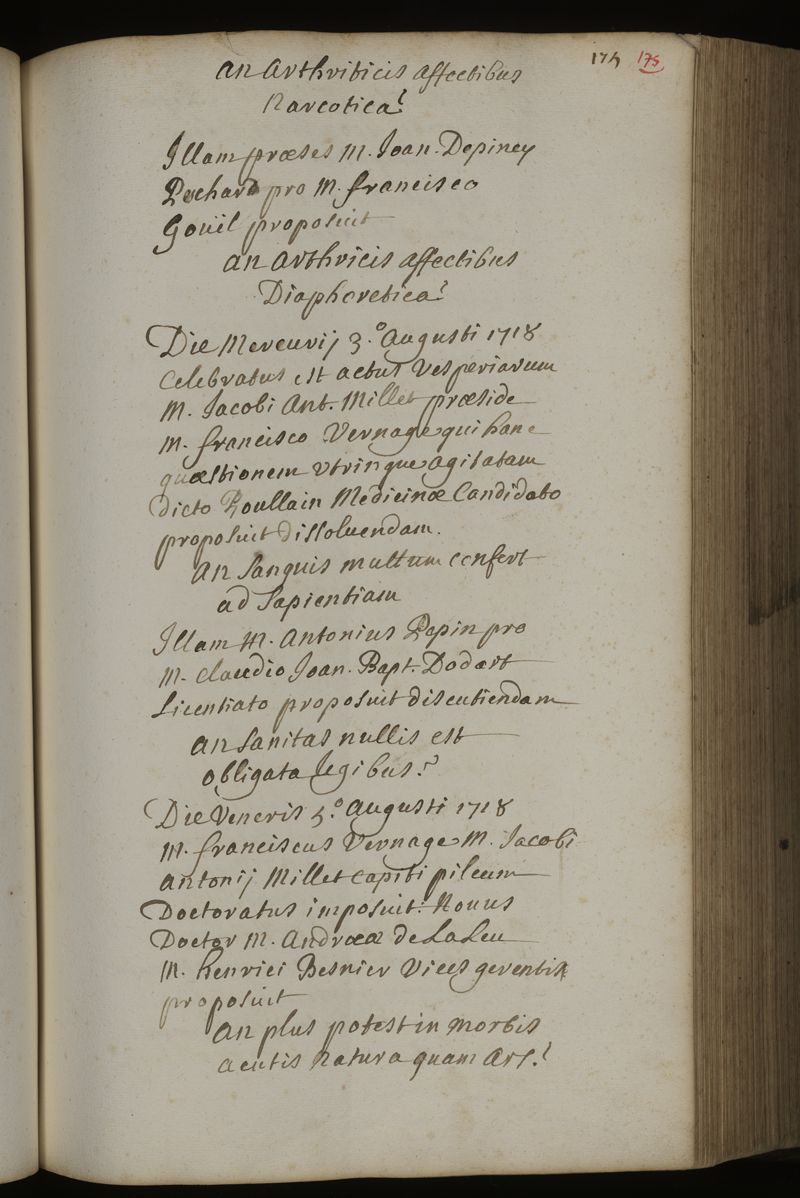 174 175
an Arthriticis affectibus
Narcotica?
Illam præses M. Joan. Depiney
Pochard pro M. francisco
Goüil proposuit
an Arthricis affectibus
Diaphoretica?
Die Mercurij 3.º Augusti 1718
Celebratus est actus Vesperiarum
M. Jacobi Ant. Millet præside
M. francisco Vernage qui hanc
quæstionem vtrinque agitatam
dicto Poullain Medicinæ Candidato
proposuit dissoluendam.
An Sanguis multum confert
ad Sapientiam
Illam M. Antonius Pepin pro
M. Claudio Joan. Bapt. Dodart
Licentiato proposuit discutiendam
an Sanitas nullis est
obligata legibus?
Die Veneris 5.º Augusti 1718
M. franciscus Vernage M. Jacobi
Antonij Millet capiti pileum
Doctoratus imposuit: Nouus
Doctor M. Andreæ de LaLeu
M. henrici Besnier Vices gerentis
proposuit
An plus potest in morbis
acutis Natura quam Ars?